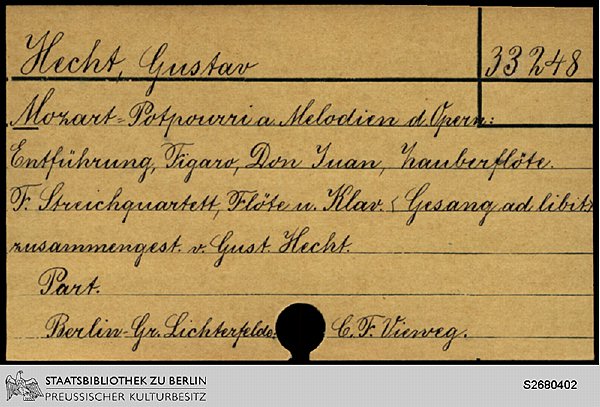 Hecht, Gustav
33248
Mozart=Potpourri a. Melodien d. Opern:
Entführung, Figaro, Don Juan, Zauberflöte.
F. Streichquartett, Flöte u. Klav. (Gesang ad libit.)
zusammengest. v. Gust. Hecht.
Part.
Berlin-Gr. Lichterfelde: C. F. Vieweg.
STAATSBIBLIOTHEK ZU BERLIN
PREUSSISCHER KULTURBESITZ
S2680402